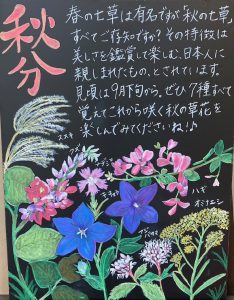 秋分
春の七草は有名ですが「秋の七草」
すべてご存知ですか? その特徴は
美しさを鑑賞して楽しむ、日本人に
親しまれたもの、とされています。
見頃は9月下旬から。ぜひ7種すべて
覚えてこれから咲く秋の草花を
楽しんでみてくださいね♪
ススキ
クズ
ナデシコ
キキョウ
フジバカマ
ハギ
オミナエシ